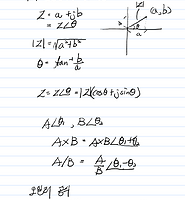 Z = a + jb
= Z∠θ
|Z| = √a²+b²
θ = tan⁻¹ b/a
|Z| (a, b)
b
θ
a
Z = Z∠θ = |Z|(cosθ + jsinθ)
A∠θ₁, B∠θ₂
A×B = A×B∠θ₁+θ₂
A/B = A/B ∠θ₁-θ₂